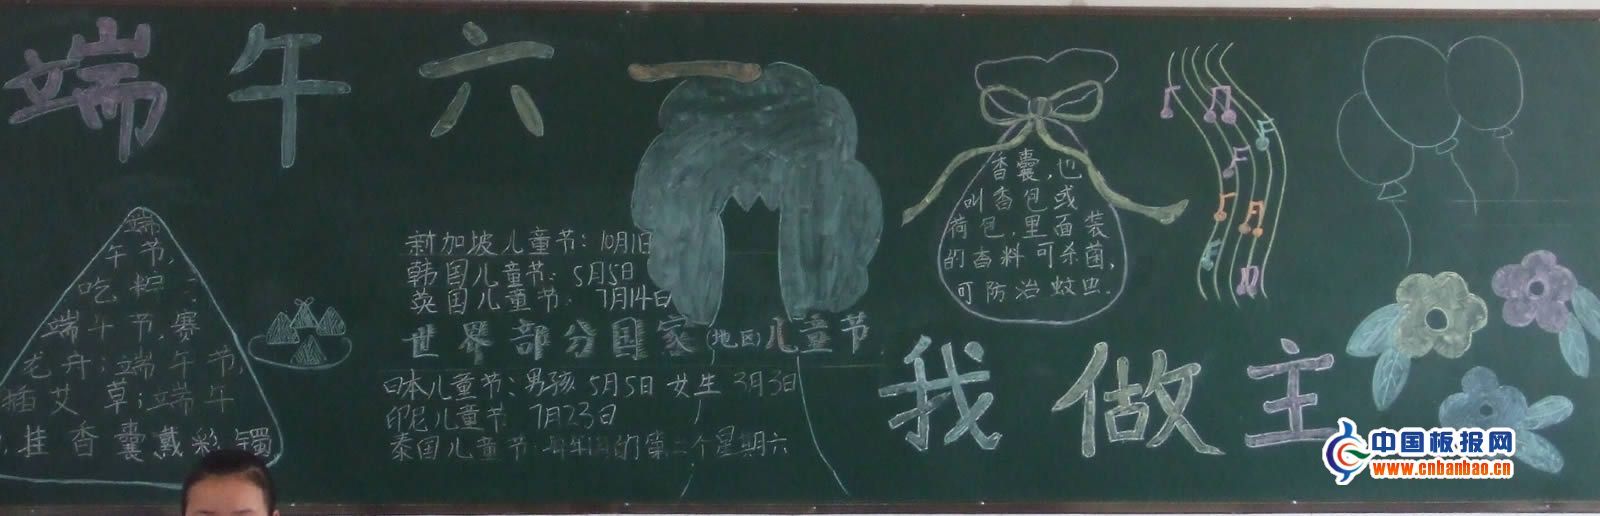 端午六一
端
午节,
吃粽;
端午节,赛
龙舟;端午节,
插艾草;端午
,挂香囊戴彩镯
新加坡儿童节:10月1日
韩国儿童节:5月5日
英国儿童节:7月14日
世界部分国家(地区)儿童节
日本儿童节:男孩5月5日 女生3月3日
印尼儿童节 7月23日
泰国儿童节 的第二个星期六
香囊,也
叫香包或
荷包,里面装
的香料可杀菌,
可防治蚊虫.
我做主
中国板报网
www.cnbanbao.cn